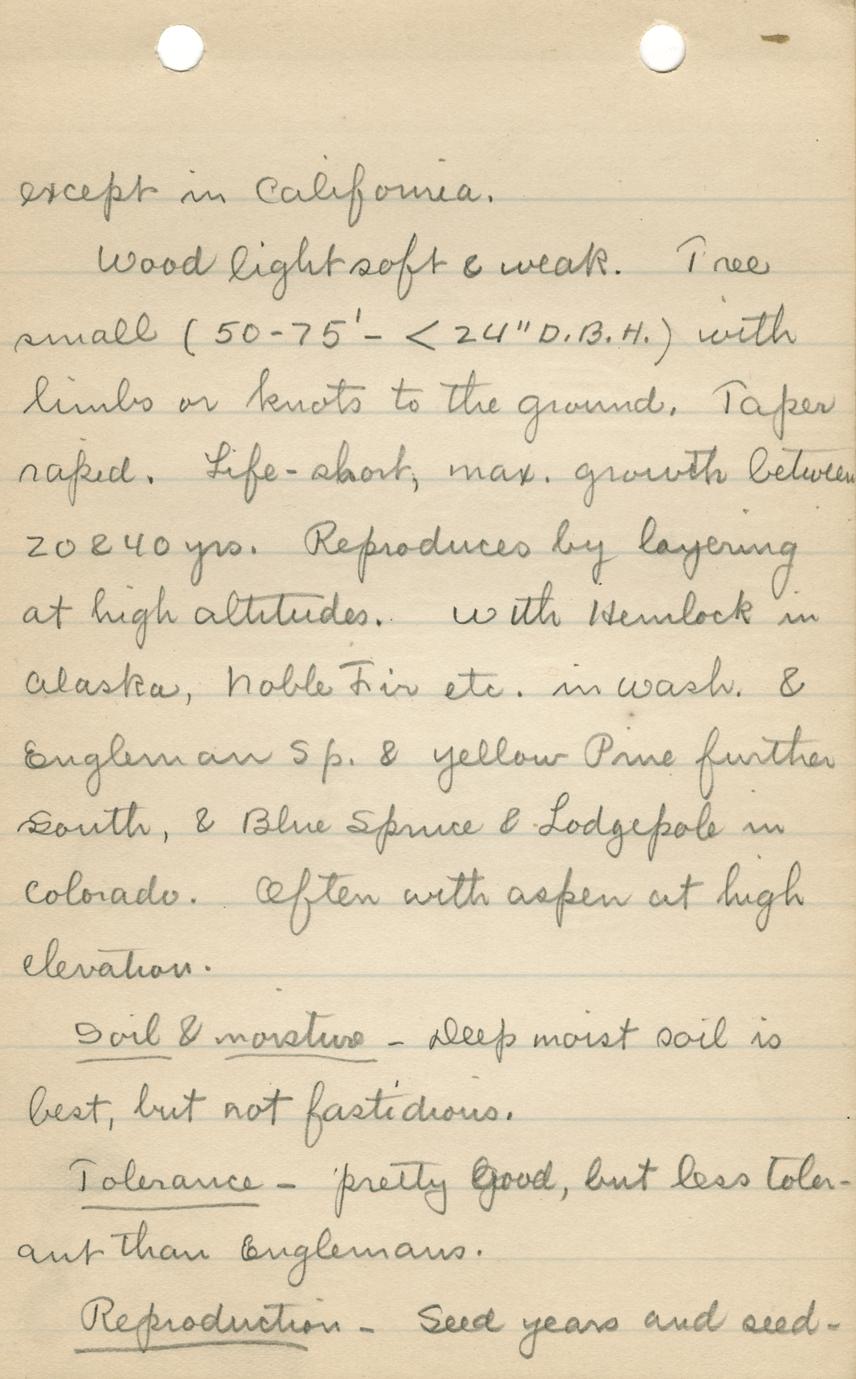 except in California.
Wood light soft & weak. Tree
small (50-75'- < 24" D.B.H.) with
limbs or knots to the ground. Taper
rapid. Life-short, max. growth between
20 & 40 yrs. Reproduces by layering
at high altitudes. With Hemlock in
Alaska, Noble Fir etc. in Wash. &
Engleman Sp. & yellow Pine further
South, & Blue Spruce & Lodgepole in
Colorado. Often with aspen at high
elevation.
Soil & moisture - Deep moist soil is
best, but not fastidious.
Tolerance - pretty good, but less toler-
ant than Englemans.
Reproduction - Seed years and seed-